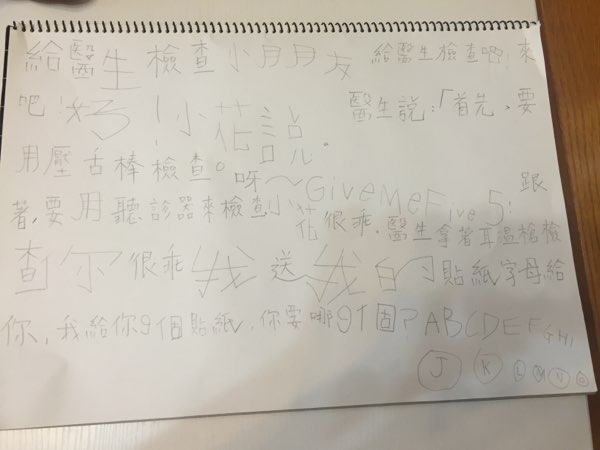 給醫生檢查小朋友 給醫生檢查吧!來
吧!好!小花說 醫生說:「首先,要
用壓舌棒檢查。呀~GiveMeFive5! 跟
著,要用聽診器來檢查小花很乖.醫生拿著耳溫槍檢
查你很乖我送我自的貼紙字母給
你,我給你9個貼紙,你要哪9个固?ABCDEFGHI
J K L M N O